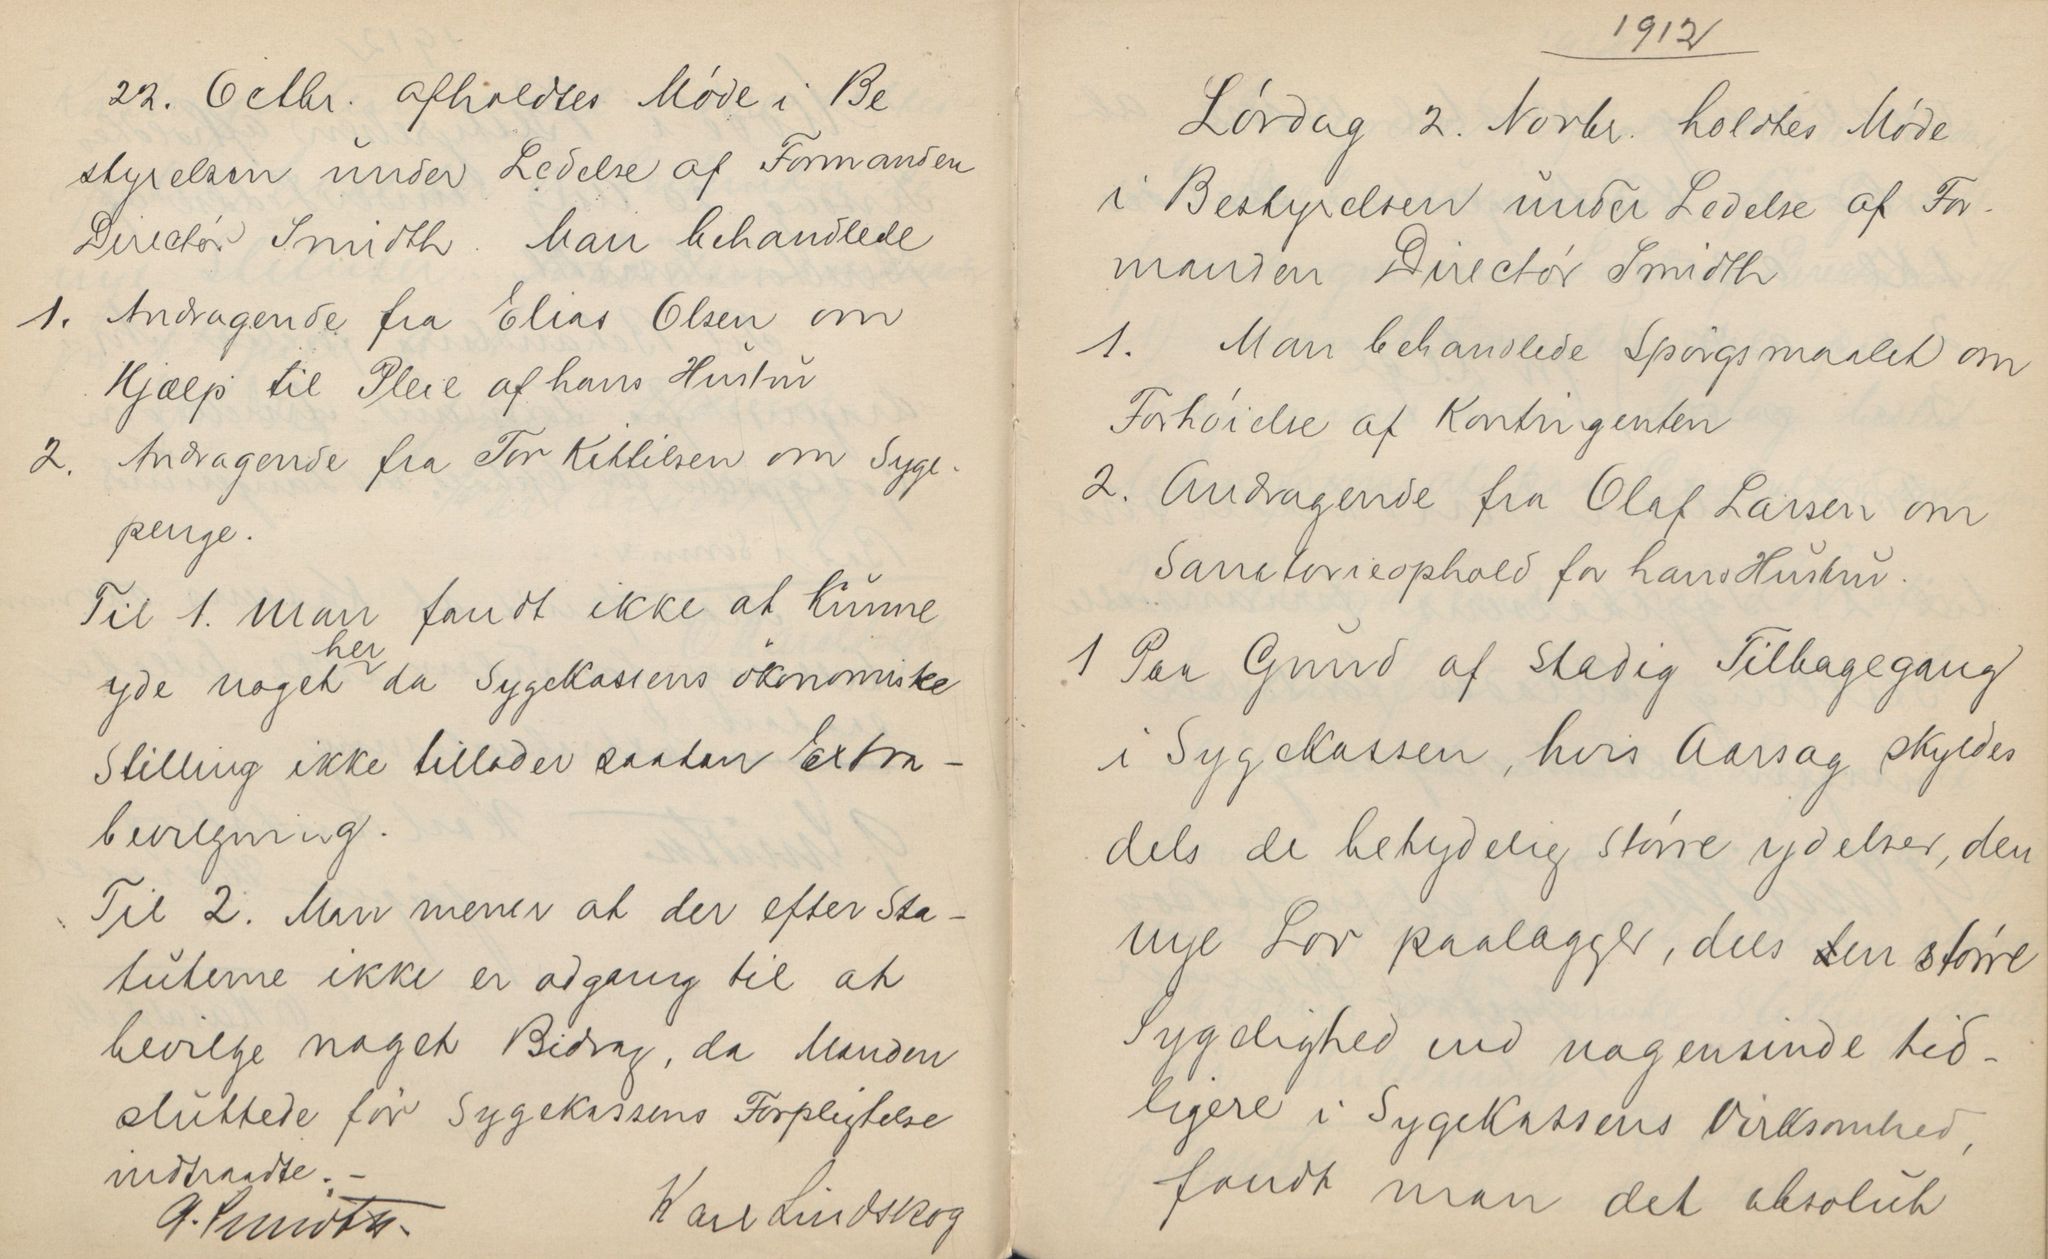 22. Octbr. afholdtes Møde i Be
styrelsen under Ledelse af Formanden
Directør Smidth. Man behandlede
1. Andragende fra Elias Olsen om
Hjælp til Pleie af hans Hustru
2. Andragende fra Tor Kittilsen om Syge-
penge.
Til 1. Man fandt ikke at kunne
her
yde noget da Sygekassens økonomiske
Stilling ikke tillader saadan Extra-
bevilgning.
Til 2. Man mener at der efter Sta-
tuterne ikke er adgang til at
bevilge noget Bidrag, da Manden
sluttede før Sygekassens Forpligtelse
indtraadte. -
G. Smidth. Karl Lindskog
1912
Lørdag 2. Novbr. holdtes Møde
i Bestyrelsen under Ledelse af For-
manden Directør Smidth
1. Man behandlede Spørgsmaalet om
Forhøielse af Kontingenten
2. Andragende fra Olaf Larsen om
Sanatorieophold for hans Hustru.
1 Paa Grund af stadig Tilbagegang
i Sygekassen, hvis Aarsag skyldes
dels de betydelig større ydelser, den
nye Lov paalægger, dels den større
Sygelighed end nogensinde tid-
ligere i Sygekassens Virksomhed,
fandt man det absolut